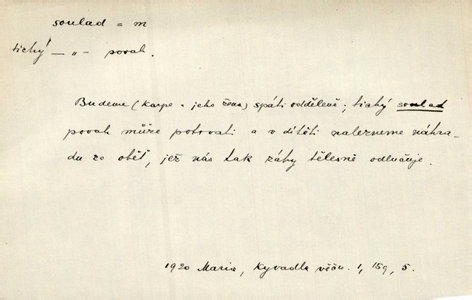 soulad = m
tichý — „ — povah.
Budeme (Karpe a jeho žena) spáti odděleně; tichý soulad
povah může potrvati a v dítěti nalezneme náhra-
du za oběť, jež nás tak záhy tělesně odlučuje.
1920 Maria, Kyvadla věčn. 1, 159, 5.